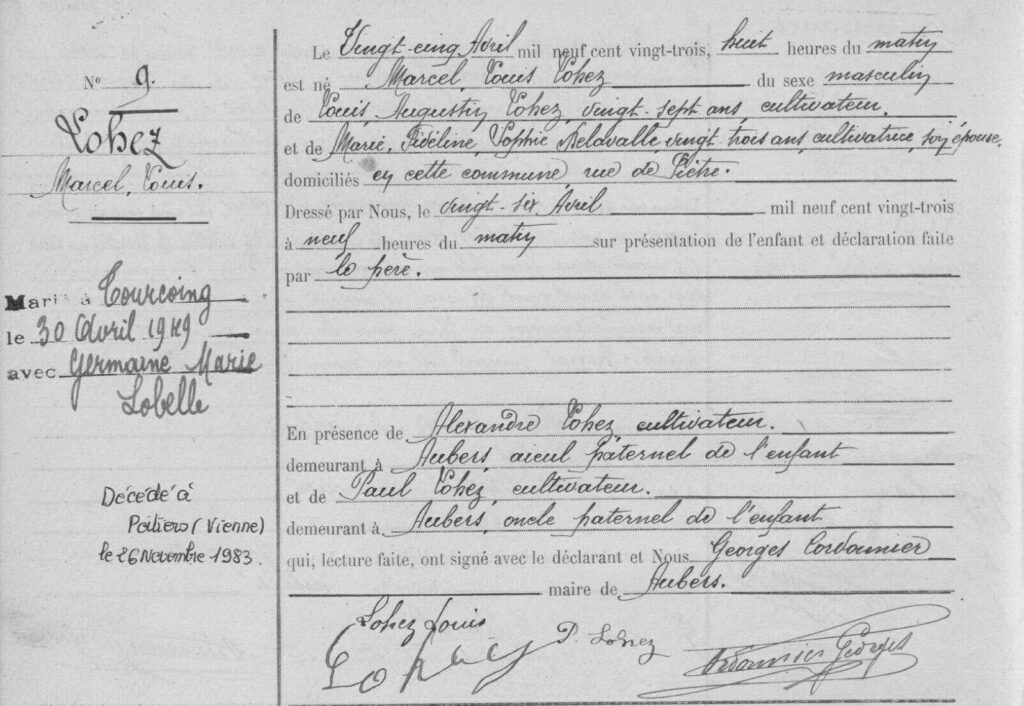 N° 9.
Lohez
Marcel, Louis.
Marié à Tourcoing
le 30 Avril 1949
avec Germaine Marie
Lobelle
Décédé à
Poitiers (Vienne)
le 26 Novembre 1983.
Le Vingt-cinq Avril mil neuf cent vingt-trois, huit heures du matin
est né Marcel, Louis Lohez du sexe masculin
de Louis Augustin Lohez, vingt-sept ans, cultivateur,
et de Marie, Fidéline, Sophie Delavalle, vingt trois ans, cultivatrice, son épouse,
domiciliés en cette commune, rue de Piètre.
Dressé par Nous, le vingt-six Avril mil neuf cent vingt-trois
à neuf heures du matin sur présentation de l'enfant et déclaration faite
par le père.
En présence de Alexandre Lohez, cultivateur.
demeurant à Aubers, aieul paternel de l'enfant
et de Paul Lohez, cultivateur.
demeurant à Aubers, oncle paternel de l'enfant
qui, lecture faite, ont signé avec le déclarant et Nous Georges Cordonnier
maire de Aubers.
Lohez Louis
Lohez
P. Lohez
Cordonnier Georges